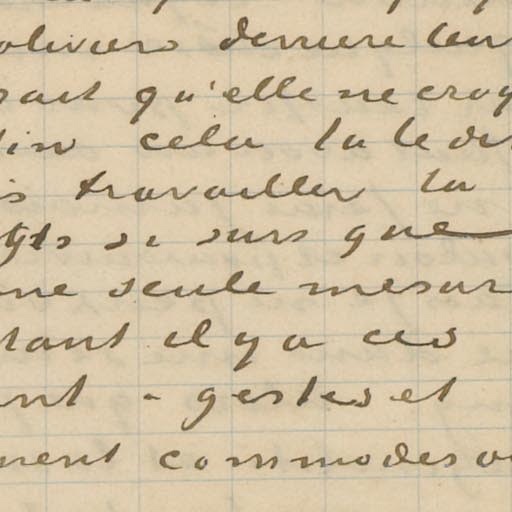 oliviers derriere leur
sait qu'elle ne croy
cela la le des
s travailler la
si surs que
ne seule mesur
tant il y a ces
nt - gestes et
ment commodes ou